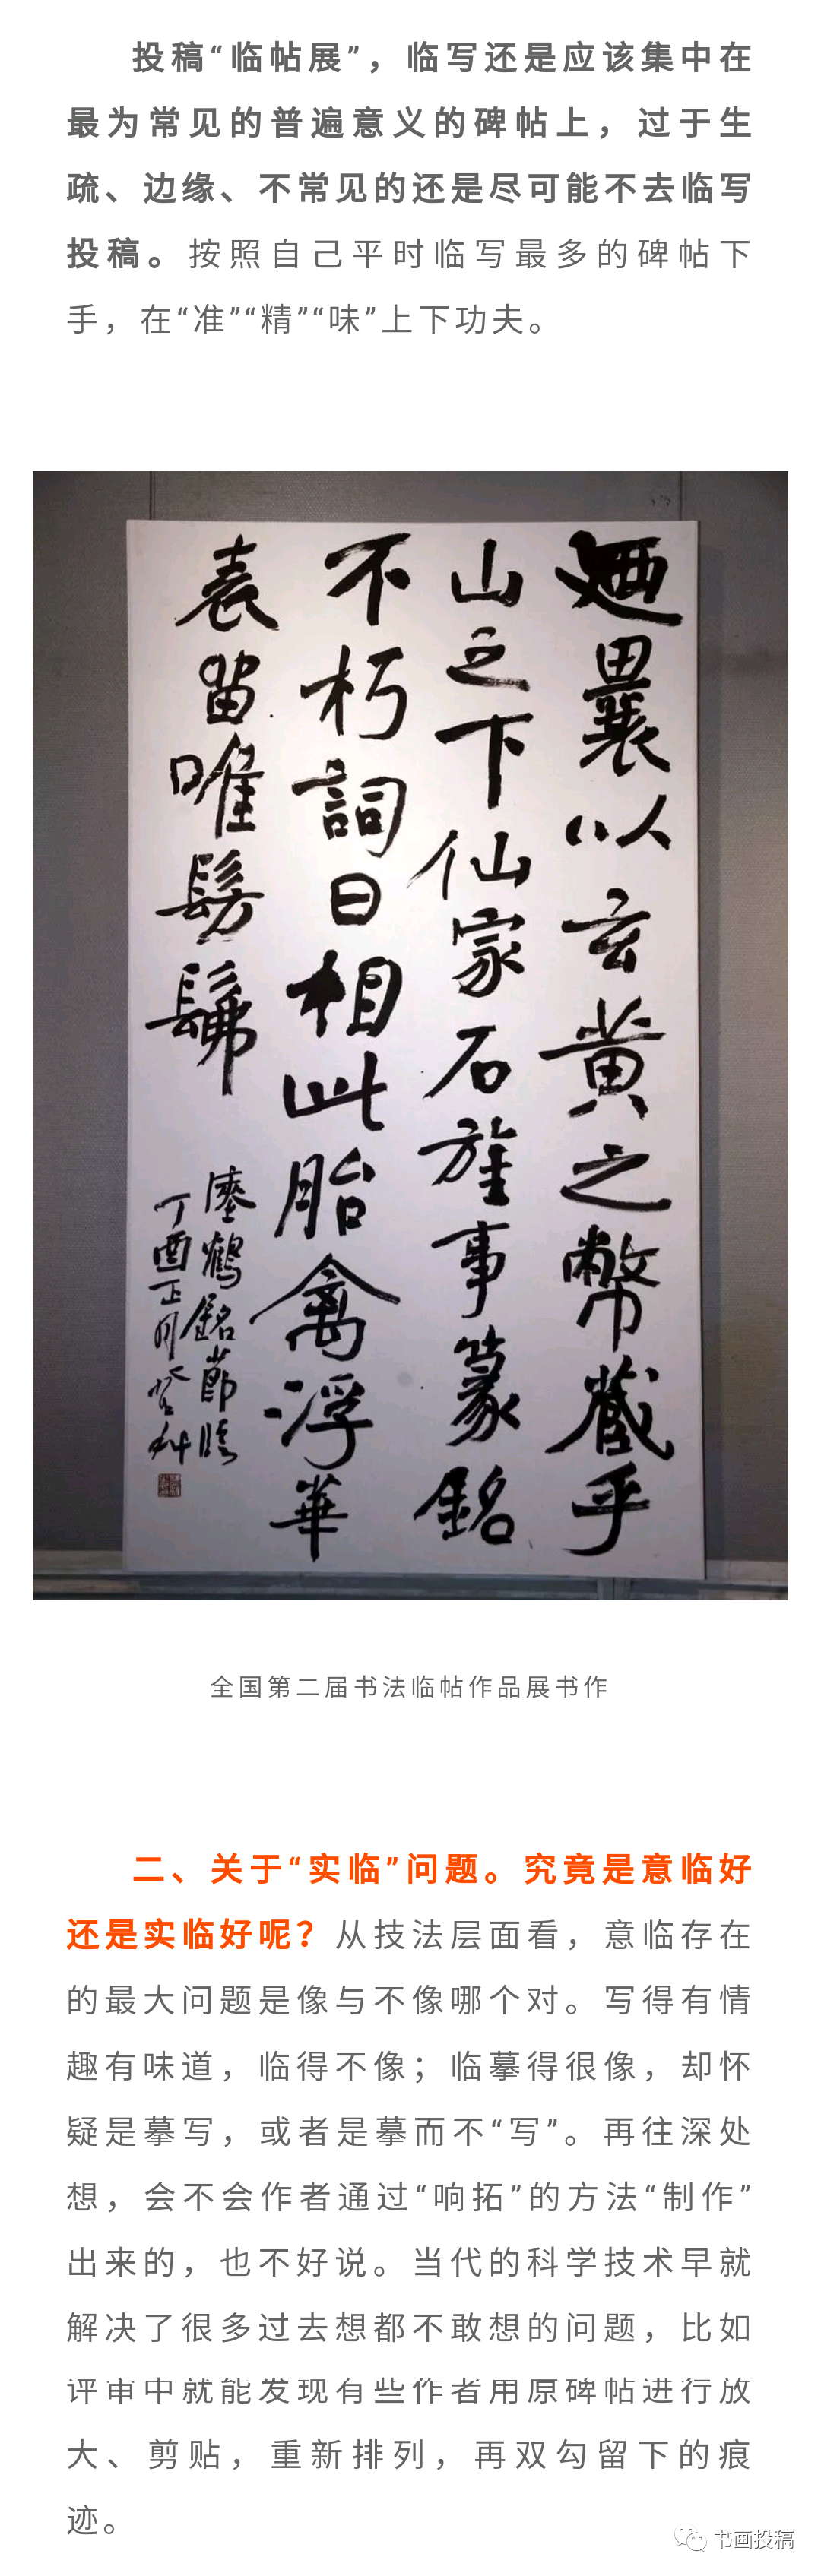 投稿“临帖展”，临写还是应该集中在
最为常见的普遍意义的碑帖上，过于生
疏、边缘、不常见的还是尽可能不去临写
投稿。按照自己平时临写最多的碑帖下
手，在“准”“精”“味”上下功夫。
廼曩以玄黄之幣藏乎
山之下仙家石旌事篆銘
不朽詞曰相此胎禽浮華
表留唯髣髴
瘞鶴銘節臨
丁酉正月登科
全国第二届书法临帖作品展书作
二、关于“实临”问题。究竟是意临好
还是实临好呢？从技法层面看，意临存在
的最大问题是像与不像哪个对。写得有情
趣有味道，临得不像；临摹得很像，却怀
疑是摹写，或者是摹而不“写”。再往深处
想，会不会作者通过“响拓”的方法“制作”
出来的，也不好说。当代的科学技术早就
解决了很多过去想都不敢想的问题，比如
评审中就能发现有些作者用原碑帖进行放
大、剪贴，重新排列，再双勾留下的痕
迹。
书画投稿